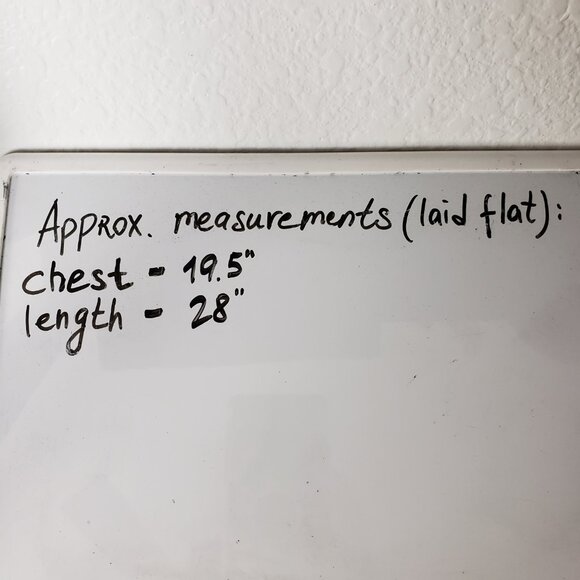 Approx. measurements (laid flat):
chest - 19.5"
length - 28"